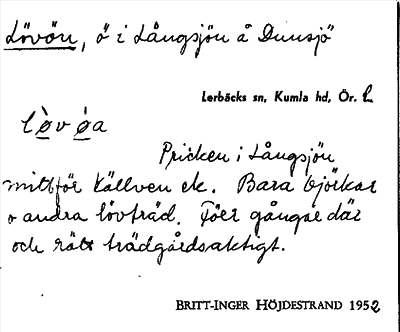 Lövön, ö i Långsjön å Dunsjö
Lerbäcks sn, Kumla hd, Ör. l.
løvøa
Pricken i Långsjön
mittför Källven ek. Bara björkar
o andra lövträd. Föer gångar där
och rätt trädgårdsaktigt.
BRITT-INGER HÖJDESTRAND 1952